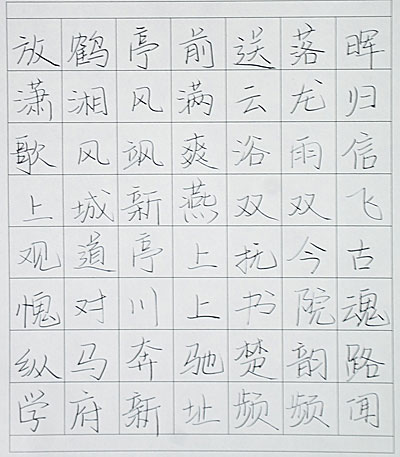 放鹤亭前送落晖
潇湘风满云龙归
歌风飒爽浴雨信
上城新燕双双飞
观道亭上抚今古
愧对川上书院魂
纵马奔驰楚韵路
学府新址频频闻